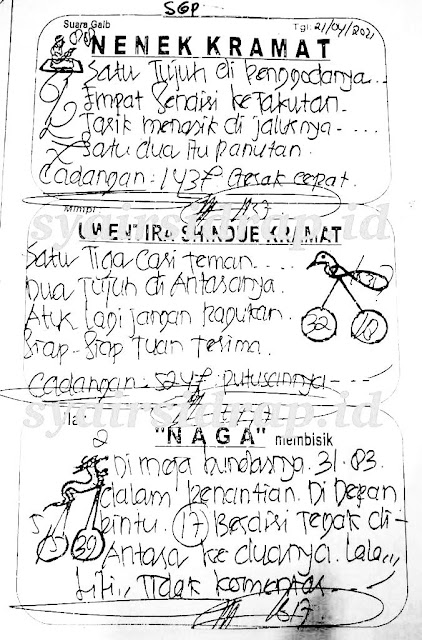 SGP
Suara Gaib
Tgl: 21/04/2021
NENEK KRAMAT
Satu Tujuh di penggodanya...
Empat Sendiri ketakutan.
Tarik menarik di jalurnya - . . . .
Satu dua itu panutan.
Cadangan: 1437 Gerak cepat.
Mimpi
KRAMAT
Satu Tiga cari teman. . . . .
Dua Tujuh di Antaranya.
Atur lagi jangan ragukan.
Siap-Siap Tuan Terima.
32
Cadangan: 5247 putusannya - - -
syairsdrap.id
syairsdrap.id
2
"NAGA" membisik
Di meja bundarnya. 31.83.
dalam penantian. Di Depan
pintu. 17 Berdiri Tegak di-
Antara ke duanya. Lala,,,
Lili,, Tidak komentar.
5
15 39